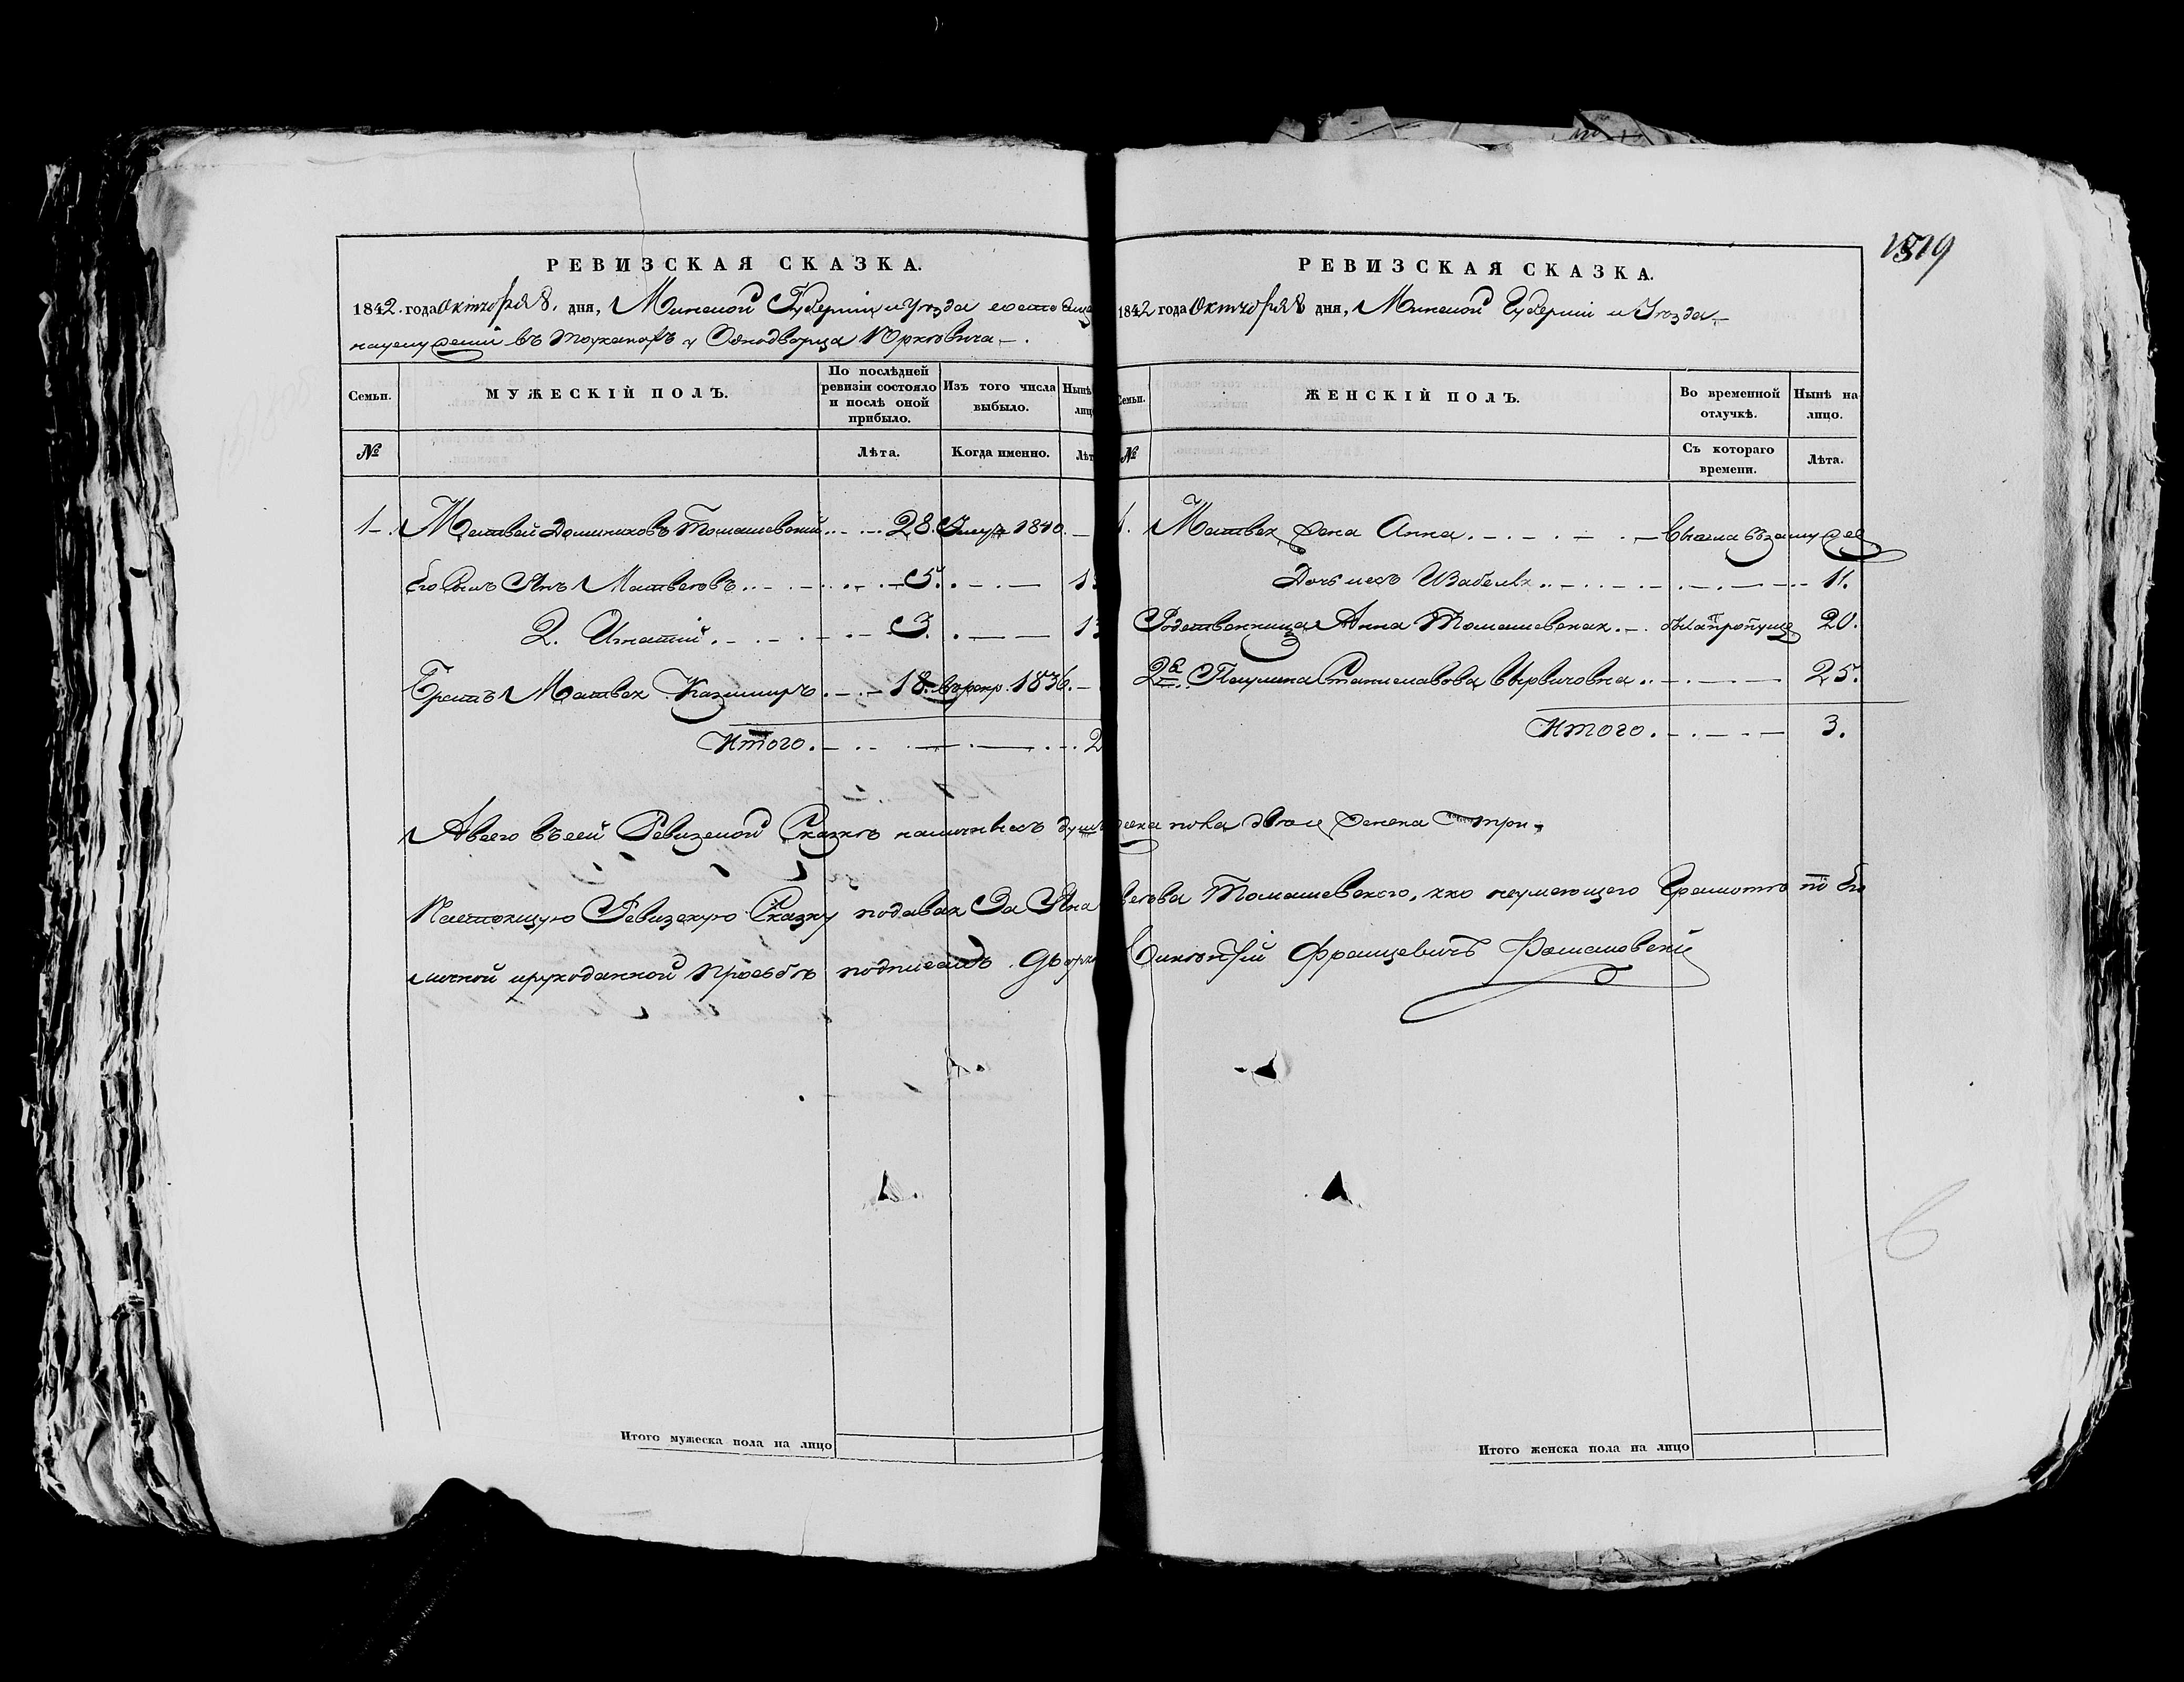 РЕВИЗСКАЯ СКАЗКА.
1842. года Октября 8. дня, Минской Губерніи и Уезда
въ Однодворца Юрковича
Семьи.
МУЖЕСКІЙ ПОЛЪ.
По послѣдней ревизіи состояло и послѣ оной прибыло.
Изъ того числа выбыло.
Нынѣ
лиц
№
Лѣта.
Когда именно.
Лѣт
1. Матвей Доминиковъ Томашевскій 28. Умеръ 1840.
Его Сынъ Янъ Матвеевъ 5. 1
2. Игнатій 3. 1
Братъ Матвея Казимиръ 18. в рекр. 1836.
Итого. 2
А всего въ сей Ревизской Сказке наличныхъ душ
Настоящую Ревизскую Сказку подавая За Яна
личной и рукоданной просьбе подписалъ
Итого мужеска пола на лицо
РЕВИЗСКАЯ СКАЗКА.
1519
1842 года Октября 8 дня, Минской Губерніи и Уезда
Семьи.
ЖЕНСКІЙ ПОЛЪ.
Во временной отлучкѣ.
Нынѣ на лицо.
№
Съ котораго времени.
Лѣта.
1. Матвея жена Анна вышла в замужее
Дочь ихъ Изабеля 11.
Родственница Анна Томашевская была пропущ 20.
2я Станиславова 25.
Итого. 3.
жеска пола двое женска три
веева Томашевского, яко неумеющего Грамоте по Его
Францевичъ
Итого женска пола на лицо
6